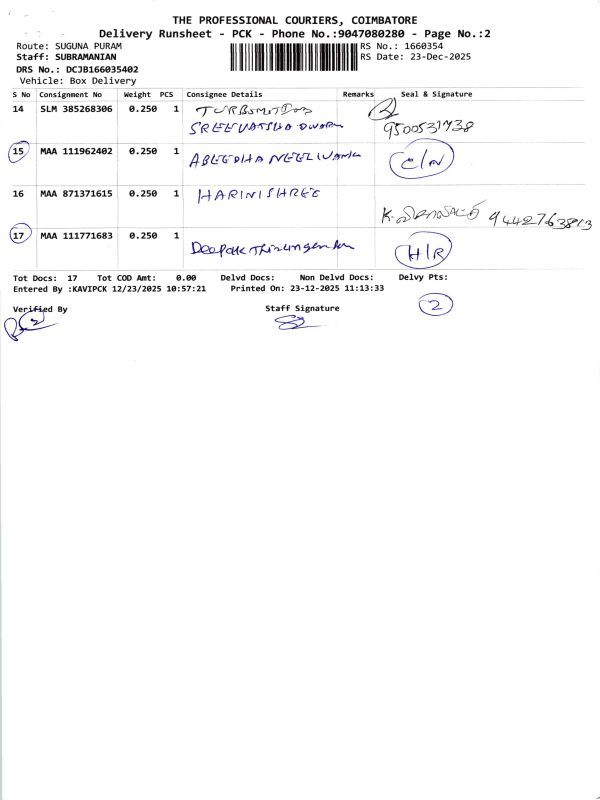 THE PROFESSIONAL COURIERS, COIMBATORE
Delivery Runsheet - PCK - Phone No.:9047080280 - Page No.:2
Route: SUGUNA PURAM RS No.: 1660354
Staff: SUBRAMANIAN RS Date: 23-Dec-2025
DRS No.: DCJB166035402
Vehicle: Box Delivery
S No Consignment No Weight PCS Consignee Details Remarks Seal & Signature
14 SLM 385268306 0.250 1
SREEVATSHA
15 MAA 111962402 0.250 1 C/N
16 MAA 871371615 0.250 1 HARINISHREE
9442763813
17 MAA 111771683 0.250 1 Deepak H/R
Tot Docs: 17 Tot COD Amt: 0.00 Delvd Docs: Non Delvd Docs: Delvy Pts:
Entered By :KAVIPCK 12/23/2025 10:57:21 Printed On: 23-12-2025 11:13:33
2
Verified By Staff Signature